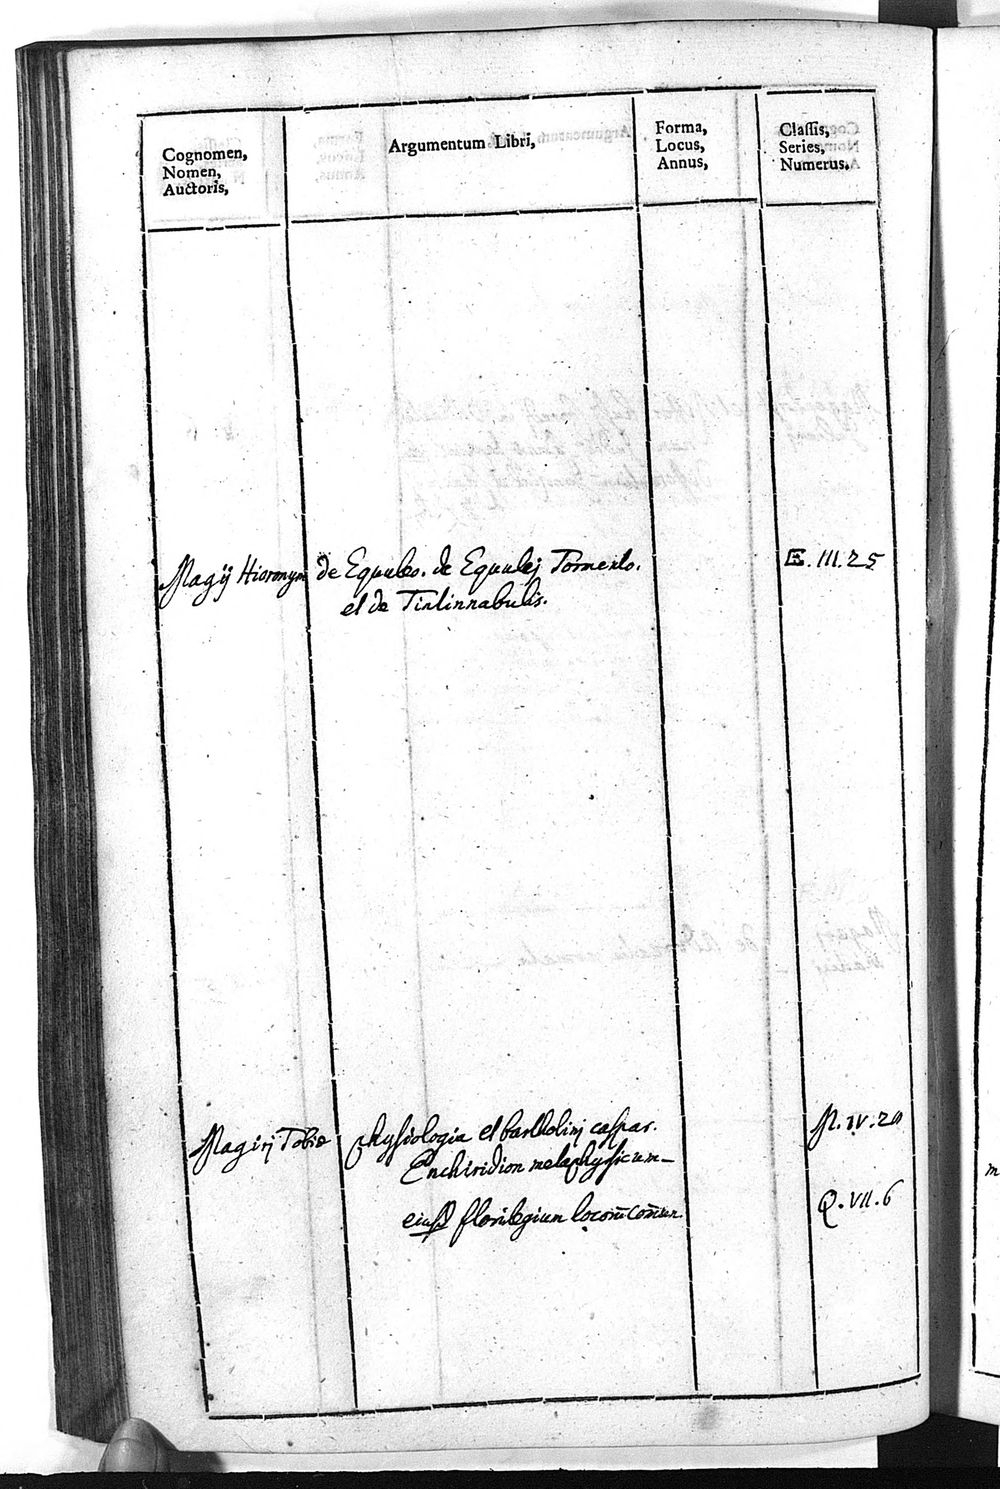 Cognomen,
Nomen,
Auctoris,
Argumentum Libri,
Forma,
Locus,
Annus,
Classis,
Series,
Numerus,
Magij Hieronym de Equuleo. de Equulej Tormento. E. III. 25
et de Tintinnabulis.
Magirj Tobiæ physiologia et bartholinj caspar. N. IV. 20
Enchiridion metaphysicum
eiusd florilegium locom̃ com̃un. Q. VII. 6
m